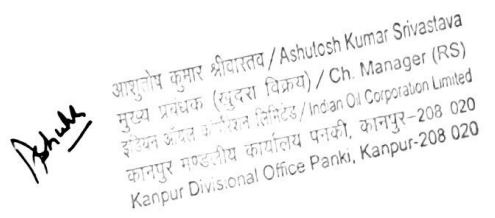 Ashuk
आशुतोष कुमार श्रीवास्तव / Ashutosh Kumar Srivastava
मुख्य प्रबंधक (खुदरा विक्रय) / Ch. Manager (RS)
इंडियन ऑयल कॉर्पोरेशन लिमिटेड / Indian Oil Corporation Limited
कानपुर मण्डलीय कार्यालय पनकी, कानपुर-208 020
Kanpur Divisional Office Panki, Kanpur-208 020